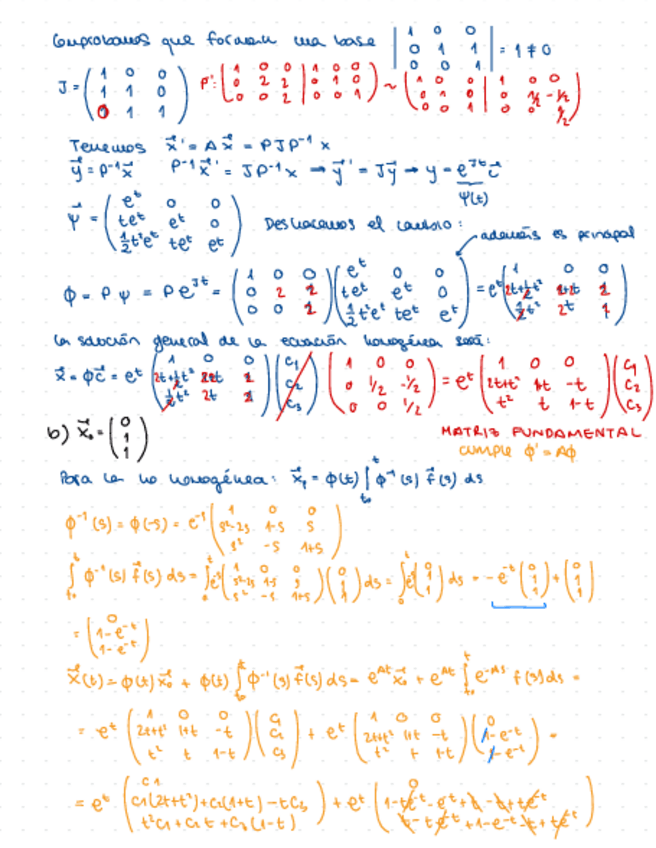 Comprobamos que forman una base | 1 0 0 ; 0 1 1 ; 0 0 1 | = 1 ≠ 0
J = ( 1 0 0 ; 1 1 0 ; 0 1 1 ) P: ( 1 0 0 ; 0 2 2 ; 0 0 2 | 1 0 0 ; 0 1 0 ; 0 0 1 ) ~ ( 1 0 0 ; 0 1 0 ; 0 0 1 | 1 0 0 ; 0 1/2 -1/2 ; 0 0 1/2 )
Tenemos x⃗' = A x⃗ = PJP⁻¹ x
y⃗ = P⁻¹x⃗ P⁻¹x⃗' = JP⁻¹ x → y⃗' = Jy⃗ → y = e^{Jt} c⃗
Ψ(t)
Ψ⃗ = ( e^t 0 0 ; te^t e^t 0 ; ½t²e^t te^t e^t ) Deshacemos el cambio:
además es principal
ϕ = PΨ = Pe^{Jt} = ( 1 0 0 ; 0 2 2 ; 0 0 2 ) ( e^t 0 0 ; te^t e^t 0 ; ½t²e^t te^t e^t ) = e^t
La solución general de la ecuación homogénea será:
x⃗ = ϕc⃗ = e^t ( c₁ ; c₂ ; c₃ ) ( 1 0 0 ; 0 1/2 -1/2 ; 0 0 1/2 ) = e^t ( 1 0 0 ; 2t+t² 1+t -t ; t² t 1-t ) ( c₁ ; c₂ ; c₃ )
b) x⃗₀ = ( 0 ; 1 ; 1 )
MATRIZ FUNDAMENTAL
cumple ϕ' = Aϕ
Para la no homogénea: x⃗₁ = ϕ(t) ∫_{t₀}^{t} ϕ⁻¹(s) f⃗(s) ds
ϕ⁻¹(s) = ϕ(-s) = ( 1 0 0 ; s²-2s 1-s s ; s² -s 1+s )
∫_{t₀}^{t} ϕ⁻¹(s) f⃗(s) ds = ∫ ( 1 0 0 ; s²-2s 1-s s ; s² -s 1+s ) ( 0 ; 1 ; 1 ) ds = ∫ ( 0 ; 1 ; 1 ) ds = -e^{-t} ( 0 ; 1 ; 1 ) + ( 0 ; 1 ; 1 )
= ( 0 ; 1-e^{-t} ; 1-e^{-t} )
x⃗(t) = ϕ(t) x⃗₀ + ϕ(t) ∫_{t₀}^{t} ϕ⁻¹(s) f⃗(s) ds = e^{At} x⃗₀ + e^{At} ∫_{t₀}^{t} e^{-As} f(s) ds =
= e^t ( 1 0 0 ; 2t+t² 1+t -t ; t² t 1-t ) ( c₁ ; c₂ ; c₃ ) + e^t ( 1 0 0 ; 2t+t² 1+t -t ; t² t 1-t ) ( 0 ; 1-e^{-t} ; 1-e^{-t} ) =
= e^t ( c₁ ; c₁(2t+t²)+c₂(1+t)-tc₃ ; t²c₁+c₂t+c₃(1-t) ) + e^t